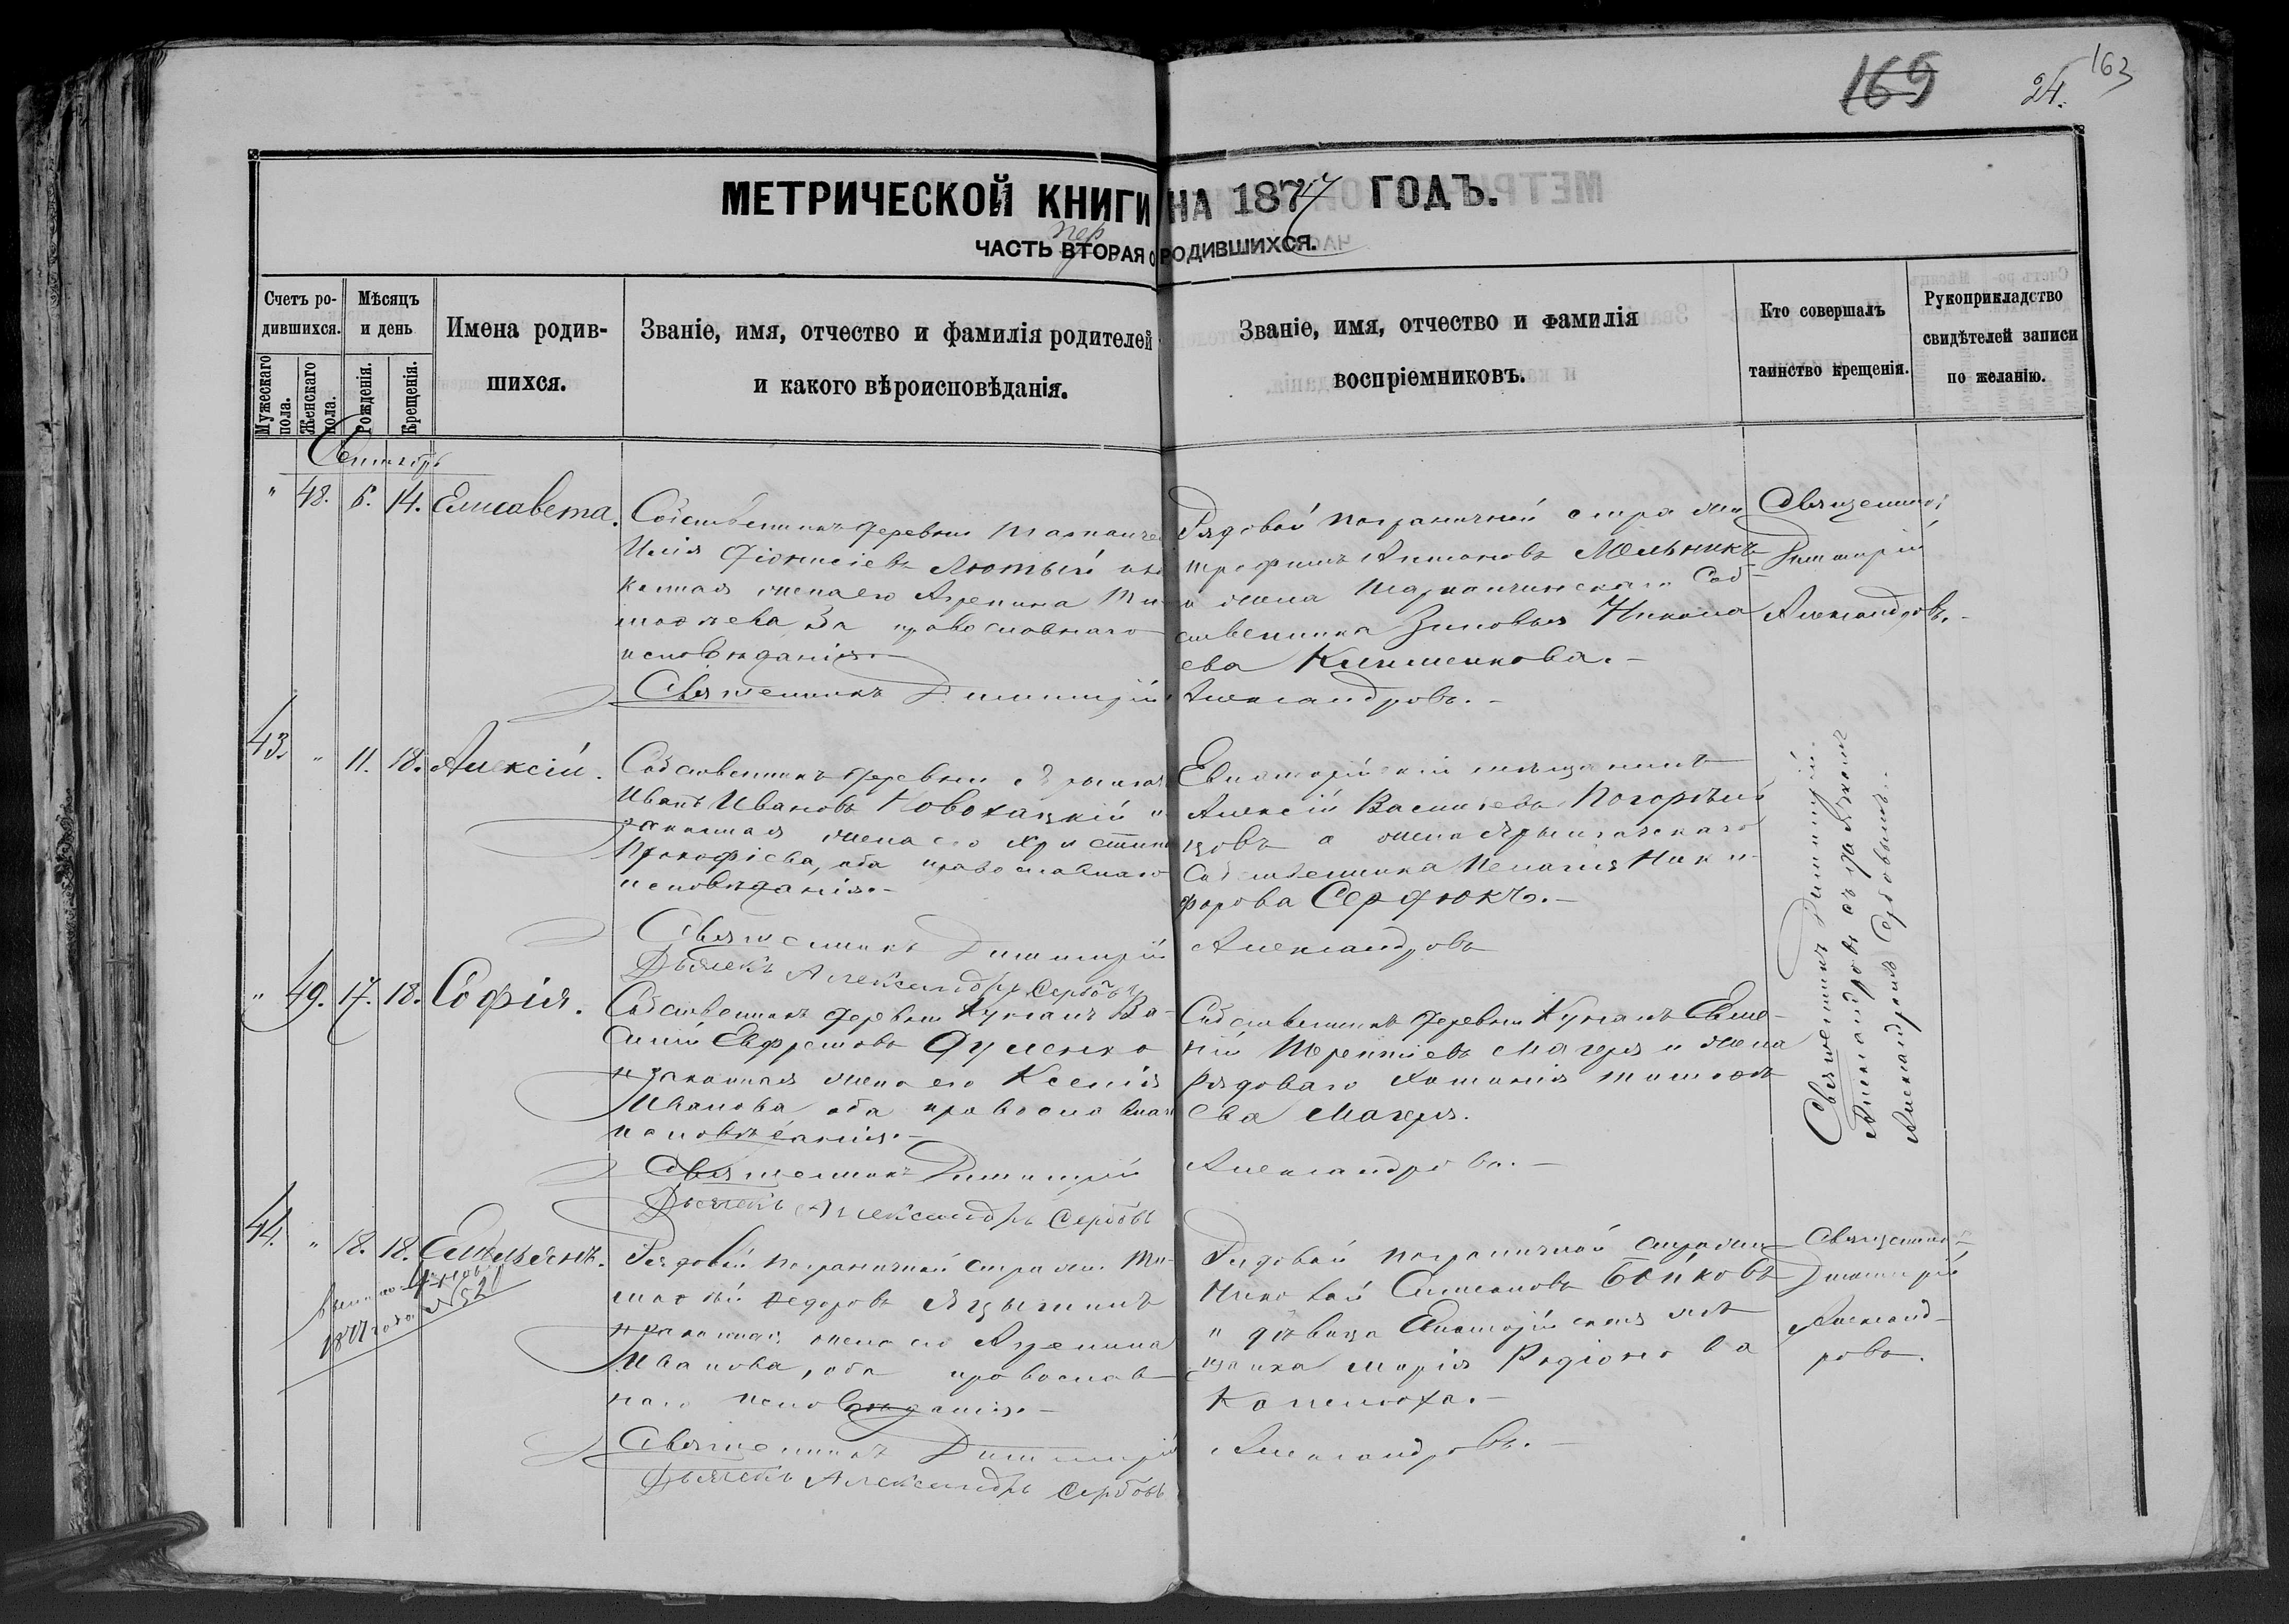 169
24.
163
МЕТРИЧЕСКОЙ КНИГИ НА 1877 ГОДЪ.
пер
ЧАСТЬ ВТОРАЯ О РОДИВШИХСЯ.
Счетъ ро-
дившихся.
Мужескаго
пола.
Женскаго
пола.
Мѣсяцъ
и день
Рожденія.
Крещенія.
Имена родив-
шихся.
Званіе, имя, отчество и фамилія родителей
и какого вѣроисповѣданія.
Званіе, имя, отчество и фамилія
воспріемниковъ.
Кто совершалъ
таинство крещенія.
Рукоприкладство
свидѣтелей записи
по желанію.
Сентябрь
" 48. 6. 14. Елисавета.
Собственникъ деревни
Илія Діонисіевъ Лютый
жена его Агрепина Ти-
православнаго
исповѣданія.
Священникъ Димитрій Александровъ.
Рядовой пограничной стражи
Трофимъ Антоновъ Мельникъ
и жена Тарханчинскаго Соб-
ственника Зиновья Никола
ева Клименкова.
Священникъ
Димитрій
Александровъ.
43. " 11. 18. Алексій.
Собственникъ деревни
Иванъ Ивановъ Новохацкій и
законная жена его Христина
Прокофіева, оба православнаго
исповѣданія.
Священникъ Димитрій Александровъ
Дьячекъ Александръ Сербовъ
Евпаторійскій мѣщанинъ
Алексій Васильевъ
цовъ и жена Ярылгачскаго
Собственника Пелагія Ники-
форова Сердюкъ.
Священникъ Димитрій
Александровъ съ
Александромъ Сербовымъ.
" 49. 17. 18. Софія.
Собственникъ деревни Кунанъ Ва-
силій Евфремовъ Дуленко
и законная жена его Ксенія
Иванова оба православнаго
исповѣданія.
Священникъ Димитрій Александровъ.
Дьячекъ Александръ Сербовъ
Собственникъ деревни Кунанъ Евме-
ній Терентіевъ Магеря и жена
Рядоваго
ева Магеря.
44. " 18. 18. Емельянъ.
1877 года № 521
Рядовой пограничной стражи Ти-
моѳей Ѳедоровъ
и законная жена его Агрепина
Иванова, оба православ-
наго исповѣданія.
Священникъ Димитрій Александровъ.
Дьячекъ Александръ Сербовъ
Рядовой пограничной стражи
Николай Симеоновъ Бойковъ
и дѣвица Евпаторійская мѣ-
щанка Марія Родіонова
Капелюха.
Священникъ
Димитрій
Александ-
ровъ.